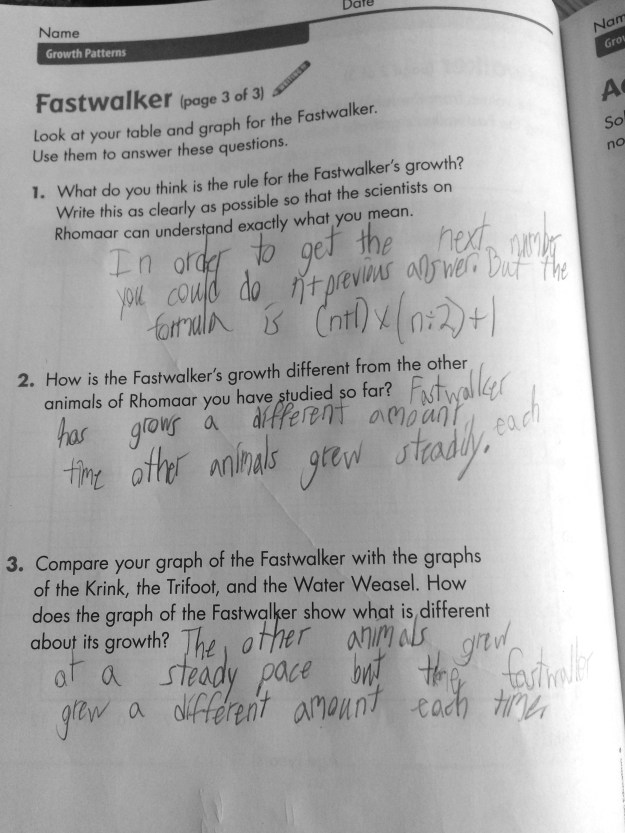 Date
Name
Growth Patterns
Fastwalker (page 3 of 3)
Look at your table and graph for the Fastwalker.
Use them to answer these questions.
1. What do you think is the rule for the Fastwalker's growth?
Write this as clearly as possible so that the scientists on
Rhomaar can understand exactly what you mean.
In order to get the next number
you could do n+previous answer. But the
formula is (n+1)x(n÷2)+1
2. How is the Fastwalker's growth different from the other
animals of Rhomaar you have studied so far? Fastwalker
has grows a different amount each
time other animals grew steadily.
3. Compare your graph of the Fastwalker with the graphs
of the Krink, the Trifoot, and the Water Weasel. How
does the graph of the Fastwalker show what is different
about its growth? The other animals grew
at a steady pace but the fastwalker
grew a different amount each time.
Nam
Grow
A
So
no